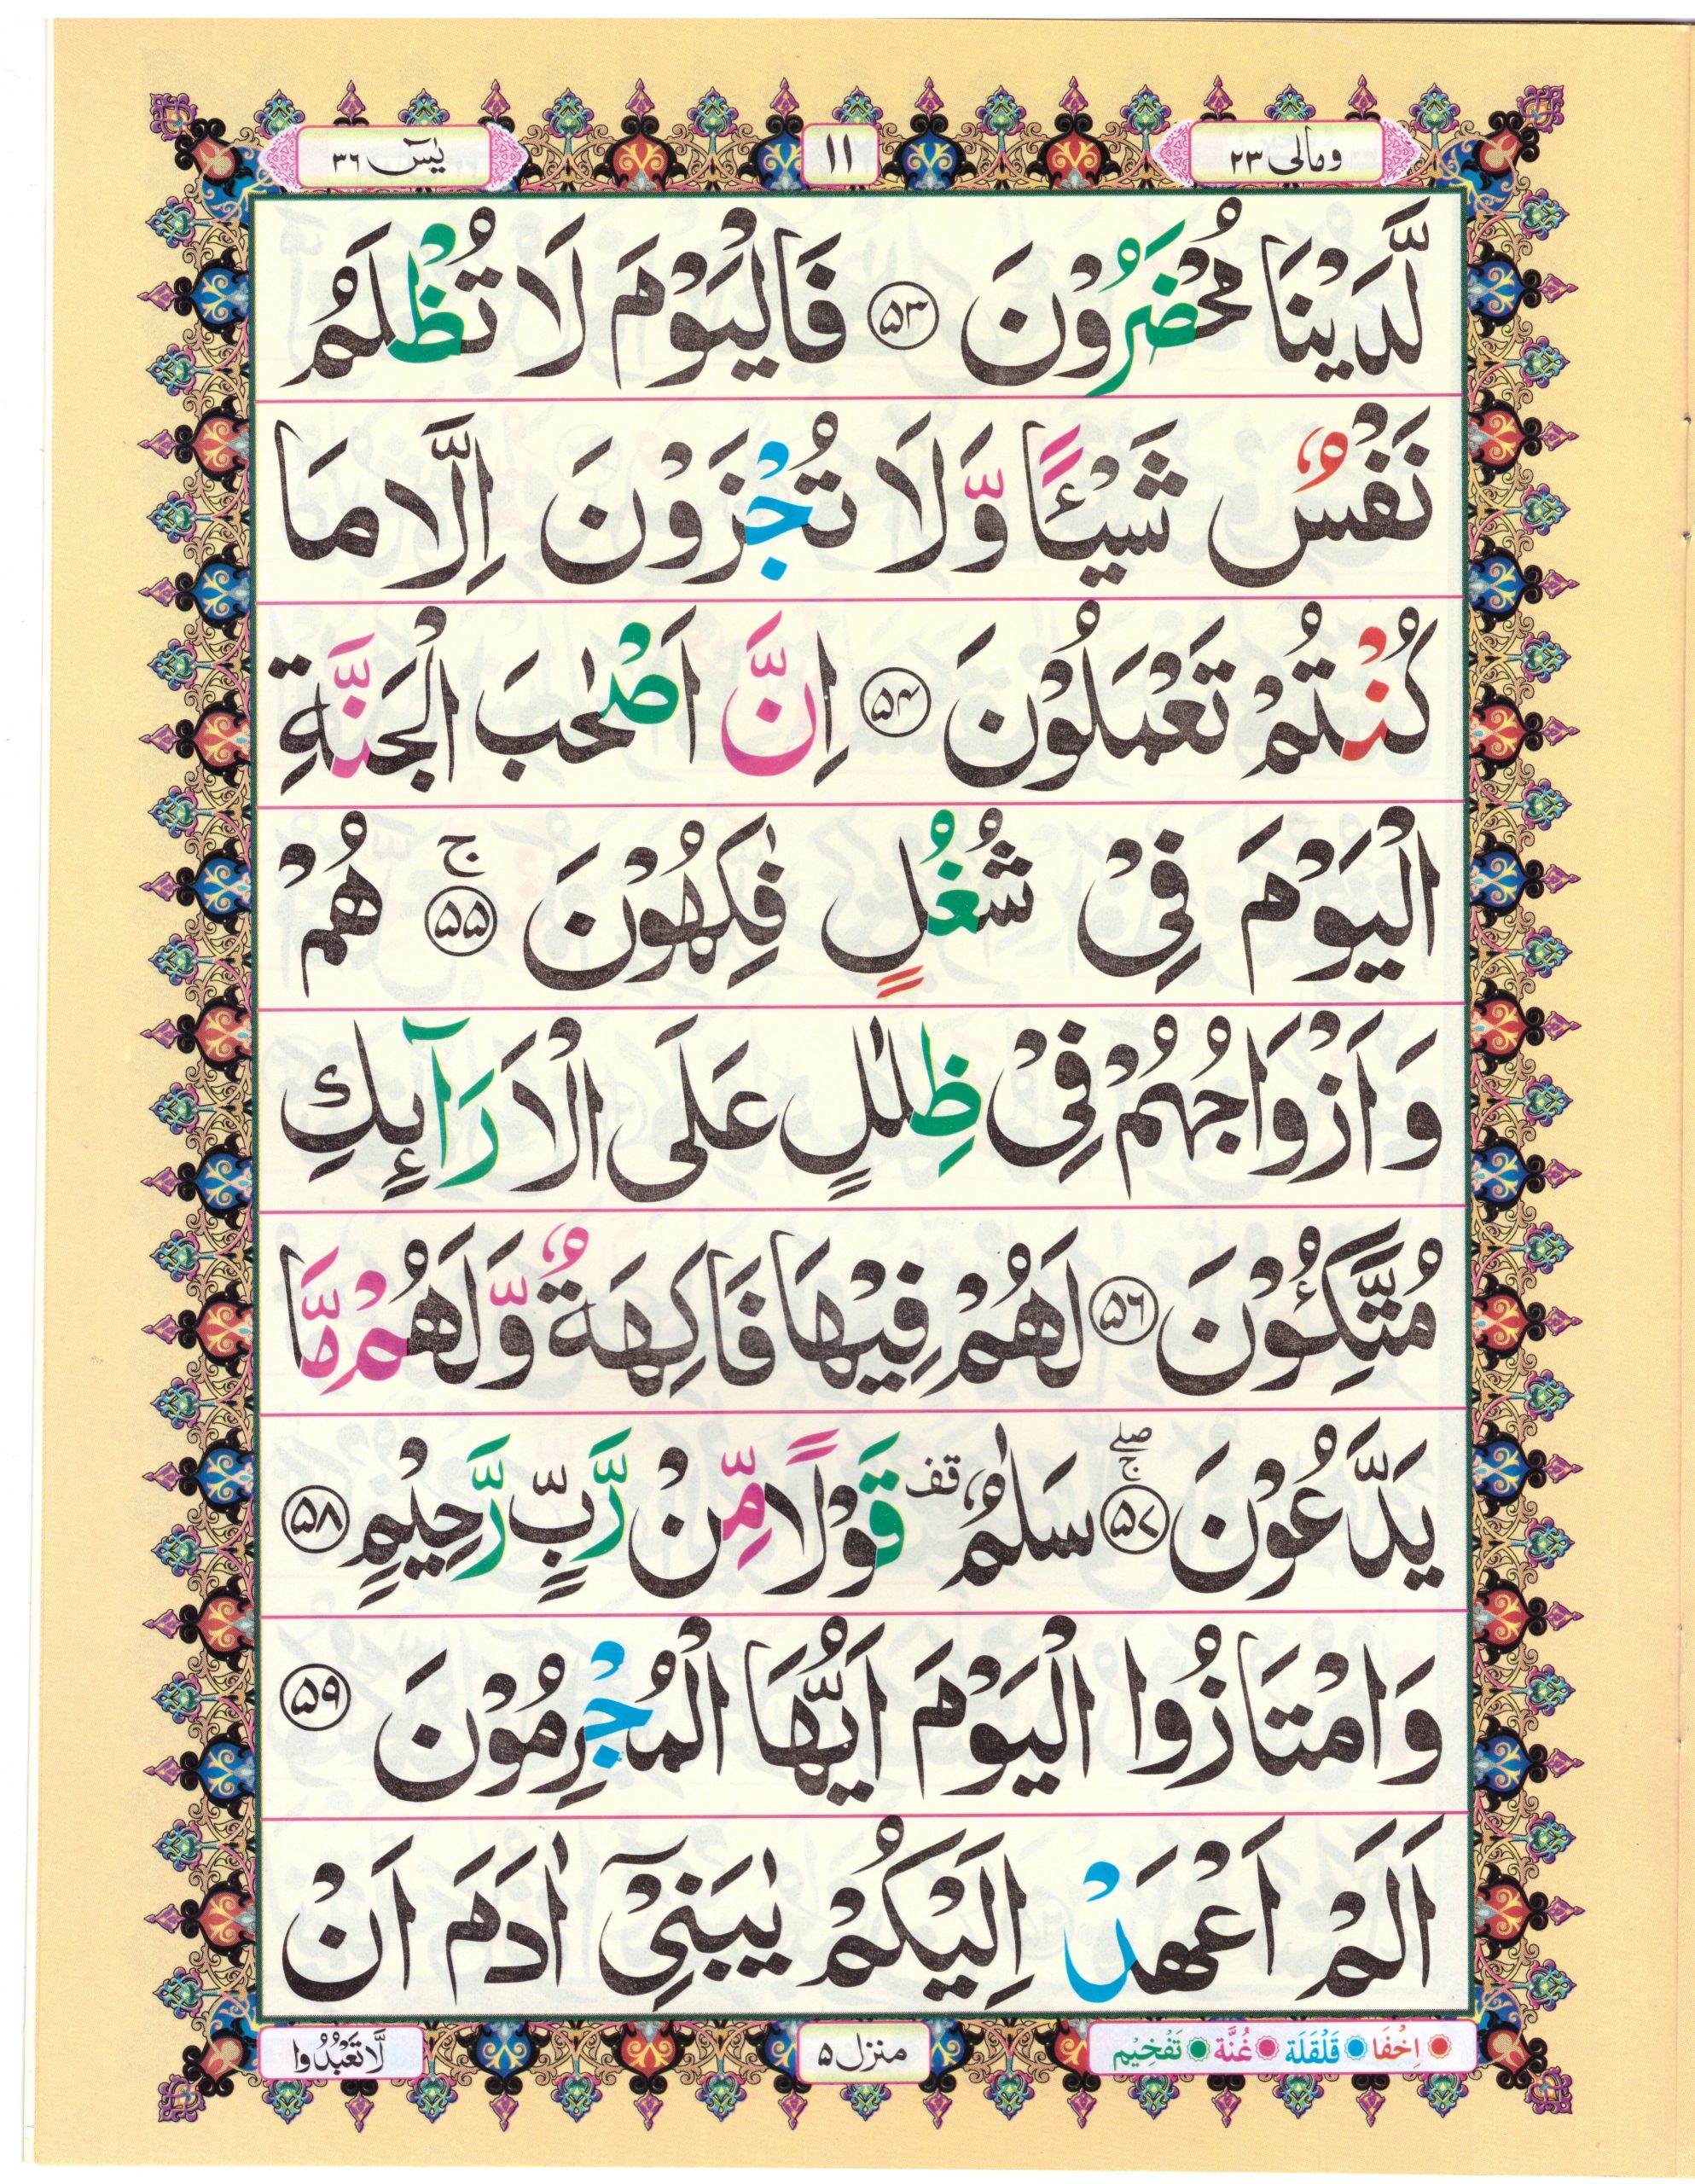 ومالی ۲۳
۱۱
یٰسٓ ۳۶
لَّدَيْنَا مُحْضَرُوْنَ ۵۳ فَالْيَوْمَ لَا تُظْلَمُ
نَفْسٌ شَيْـًٔا وَّلَا تُجْزَوْنَ اِلَّا مَا
كُنْتُمْ تَعْمَلُوْنَ ۵۴ اِنَّ اَصْحٰبَ الْجَنَّةِ
الْيَوْمَ فِيْ شُغُلٍ فٰكِهُوْنَ ۵۵ ج هُمْ
وَاَزْوَاجُهُمْ فِيْ ظِلٰلٍ عَلَى الْاَرَآئِكِ
مُتَّكِـُٔوْنَ ۵۶ لَهُمْ فِيْهَا فَاكِهَةٌ وَّلَهُمْ مَّا
يَدَّعُوْنَ ۵۷ صلے ج سَلٰمٌ قف قَوْلًا مِّنْ رَّبٍّ رَّحِيْمٍ ۵۸
وَامْتَازُوا الْيَوْمَ اَيُّهَا الْمُجْرِمُوْنَ ۵۹
اَلَمْ اَعْهَدْ اِلَيْكُمْ يٰبَنِيْٓ اٰدَمَ اَنْ
اِخْفَا قَلْقَلَة غُنَّة تَفْخِيْم
منزل ۵
لَّا تَعْبُدُوا